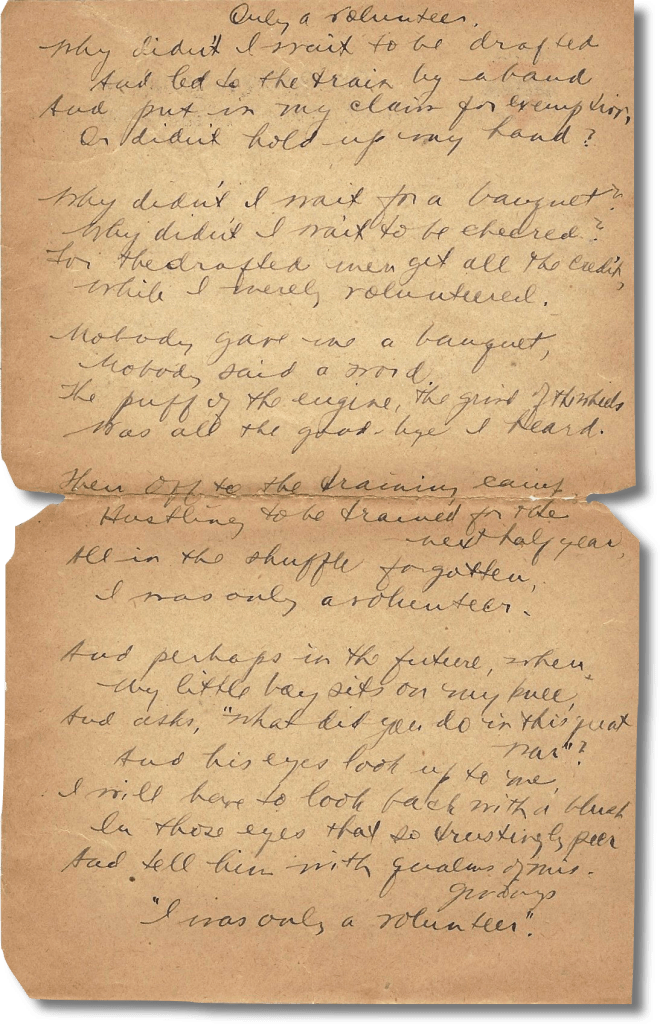 Only a volunteer.
Why didn't I wait to be drafted
And led to the train by a band
And put in my claim for exemption,
Or didn't hold up my hand?
Why didn't I wait for a banquet?
Why didn't I wait to be cheered?
For the drafted men get all the credit,
While I merely volunteered.
Nobody gave me a banquet,
Nobody said a word,
The puff of the engine, the grind of the wheels
Was all the good-bye I heard.
Then off to the training camp,
Hustling to be trained for the
next half year,
All in the shuffle forgotten,
I was only a volunteer.
And perhaps in the future, when
My little boy sits on my knee,
And asks, "What did you do in this great
war"?
And his eyes look up to me,
I will have to look back with a blush
In those eyes that so trustingly peer
And tell him with qualms of mis-
givings
"I was only a volunteer".